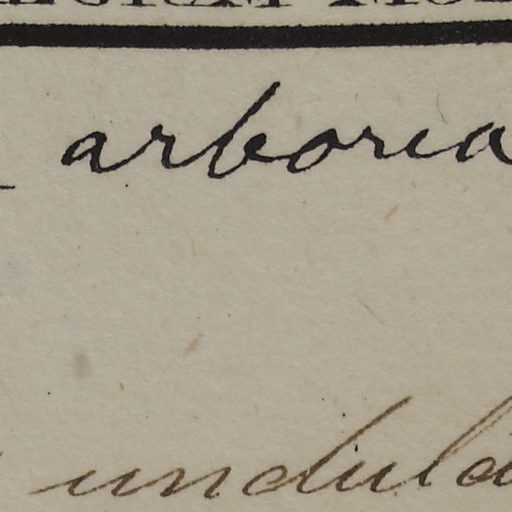 arborea
undula